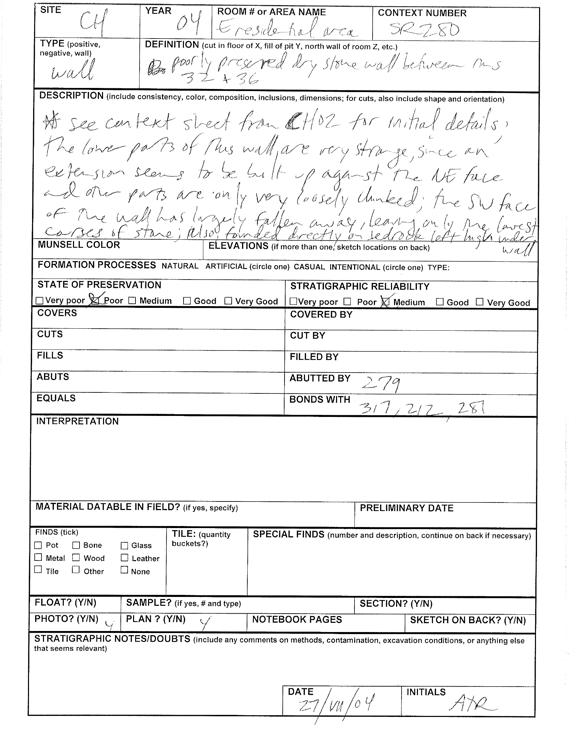 SITE CH YEAR 04 ROOM # or AREA NAME E residential area CONTEXT NUMBER SR280
TYPE (positive, negative, wall) wall
DEFINITION (cut in floor of X, fill of pit Y, north wall of room Z, etc.)
poorly preserved dry stone wall between rms
32 + 36
DESCRIPTION (include consistency, color, composition, inclusions, dimensions; for cuts, also include shape and orientation)
* see context sheet from CH02 for initial details;
the lower parts of this wall are very strange, since an
extension seems to be built up against the NE face
and other parts are only very loosely chunked; the SW face
of the wall has largely fallen away, leaving only the lowest
corses of stone; Also, founded directly on bedrock left high under
wall
MUNSELL COLOR ELEVATIONS (if more than one, sketch locations on back)
FORMATION PROCESSES NATURAL ARTIFICIAL (circle one) CASUAL INTENTIONAL (circle one) TYPE:
STATE OF PRESERVATION STRATIGRAPHIC RELIABILITY
Very poor Poor Medium Good Very Good Very poor Poor Medium Good Very Good
COVERS COVERED BY
CUTS CUT BY
FILLS FILLED BY
ABUTS ABUTTED BY 279
EQUALS BONDS WITH 317, 212, 281
INTERPRETATION
MATERIAL DATABLE IN FIELD? (if yes, specify) PRELIMINARY DATE
FINDS (tick) TILE: (quantity buckets?) SPECIAL FINDS (number and description, continue on back if necessary)
Pot Bone Glass
Metal Wood Leather
Tile Other None
FLOAT? (Y/N) SAMPLE? (if yes, # and type) SECTION? (Y/N)
PHOTO? (Y/N) y PLAN ? (Y/N) y NOTEBOOK PAGES SKETCH ON BACK? (Y/N)
STRATIGRAPHIC NOTES/DOUBTS (include any comments on methods, contamination, excavation conditions, or anything else
that seems relevant)
DATE 27/VII/04 INITIALS ATR